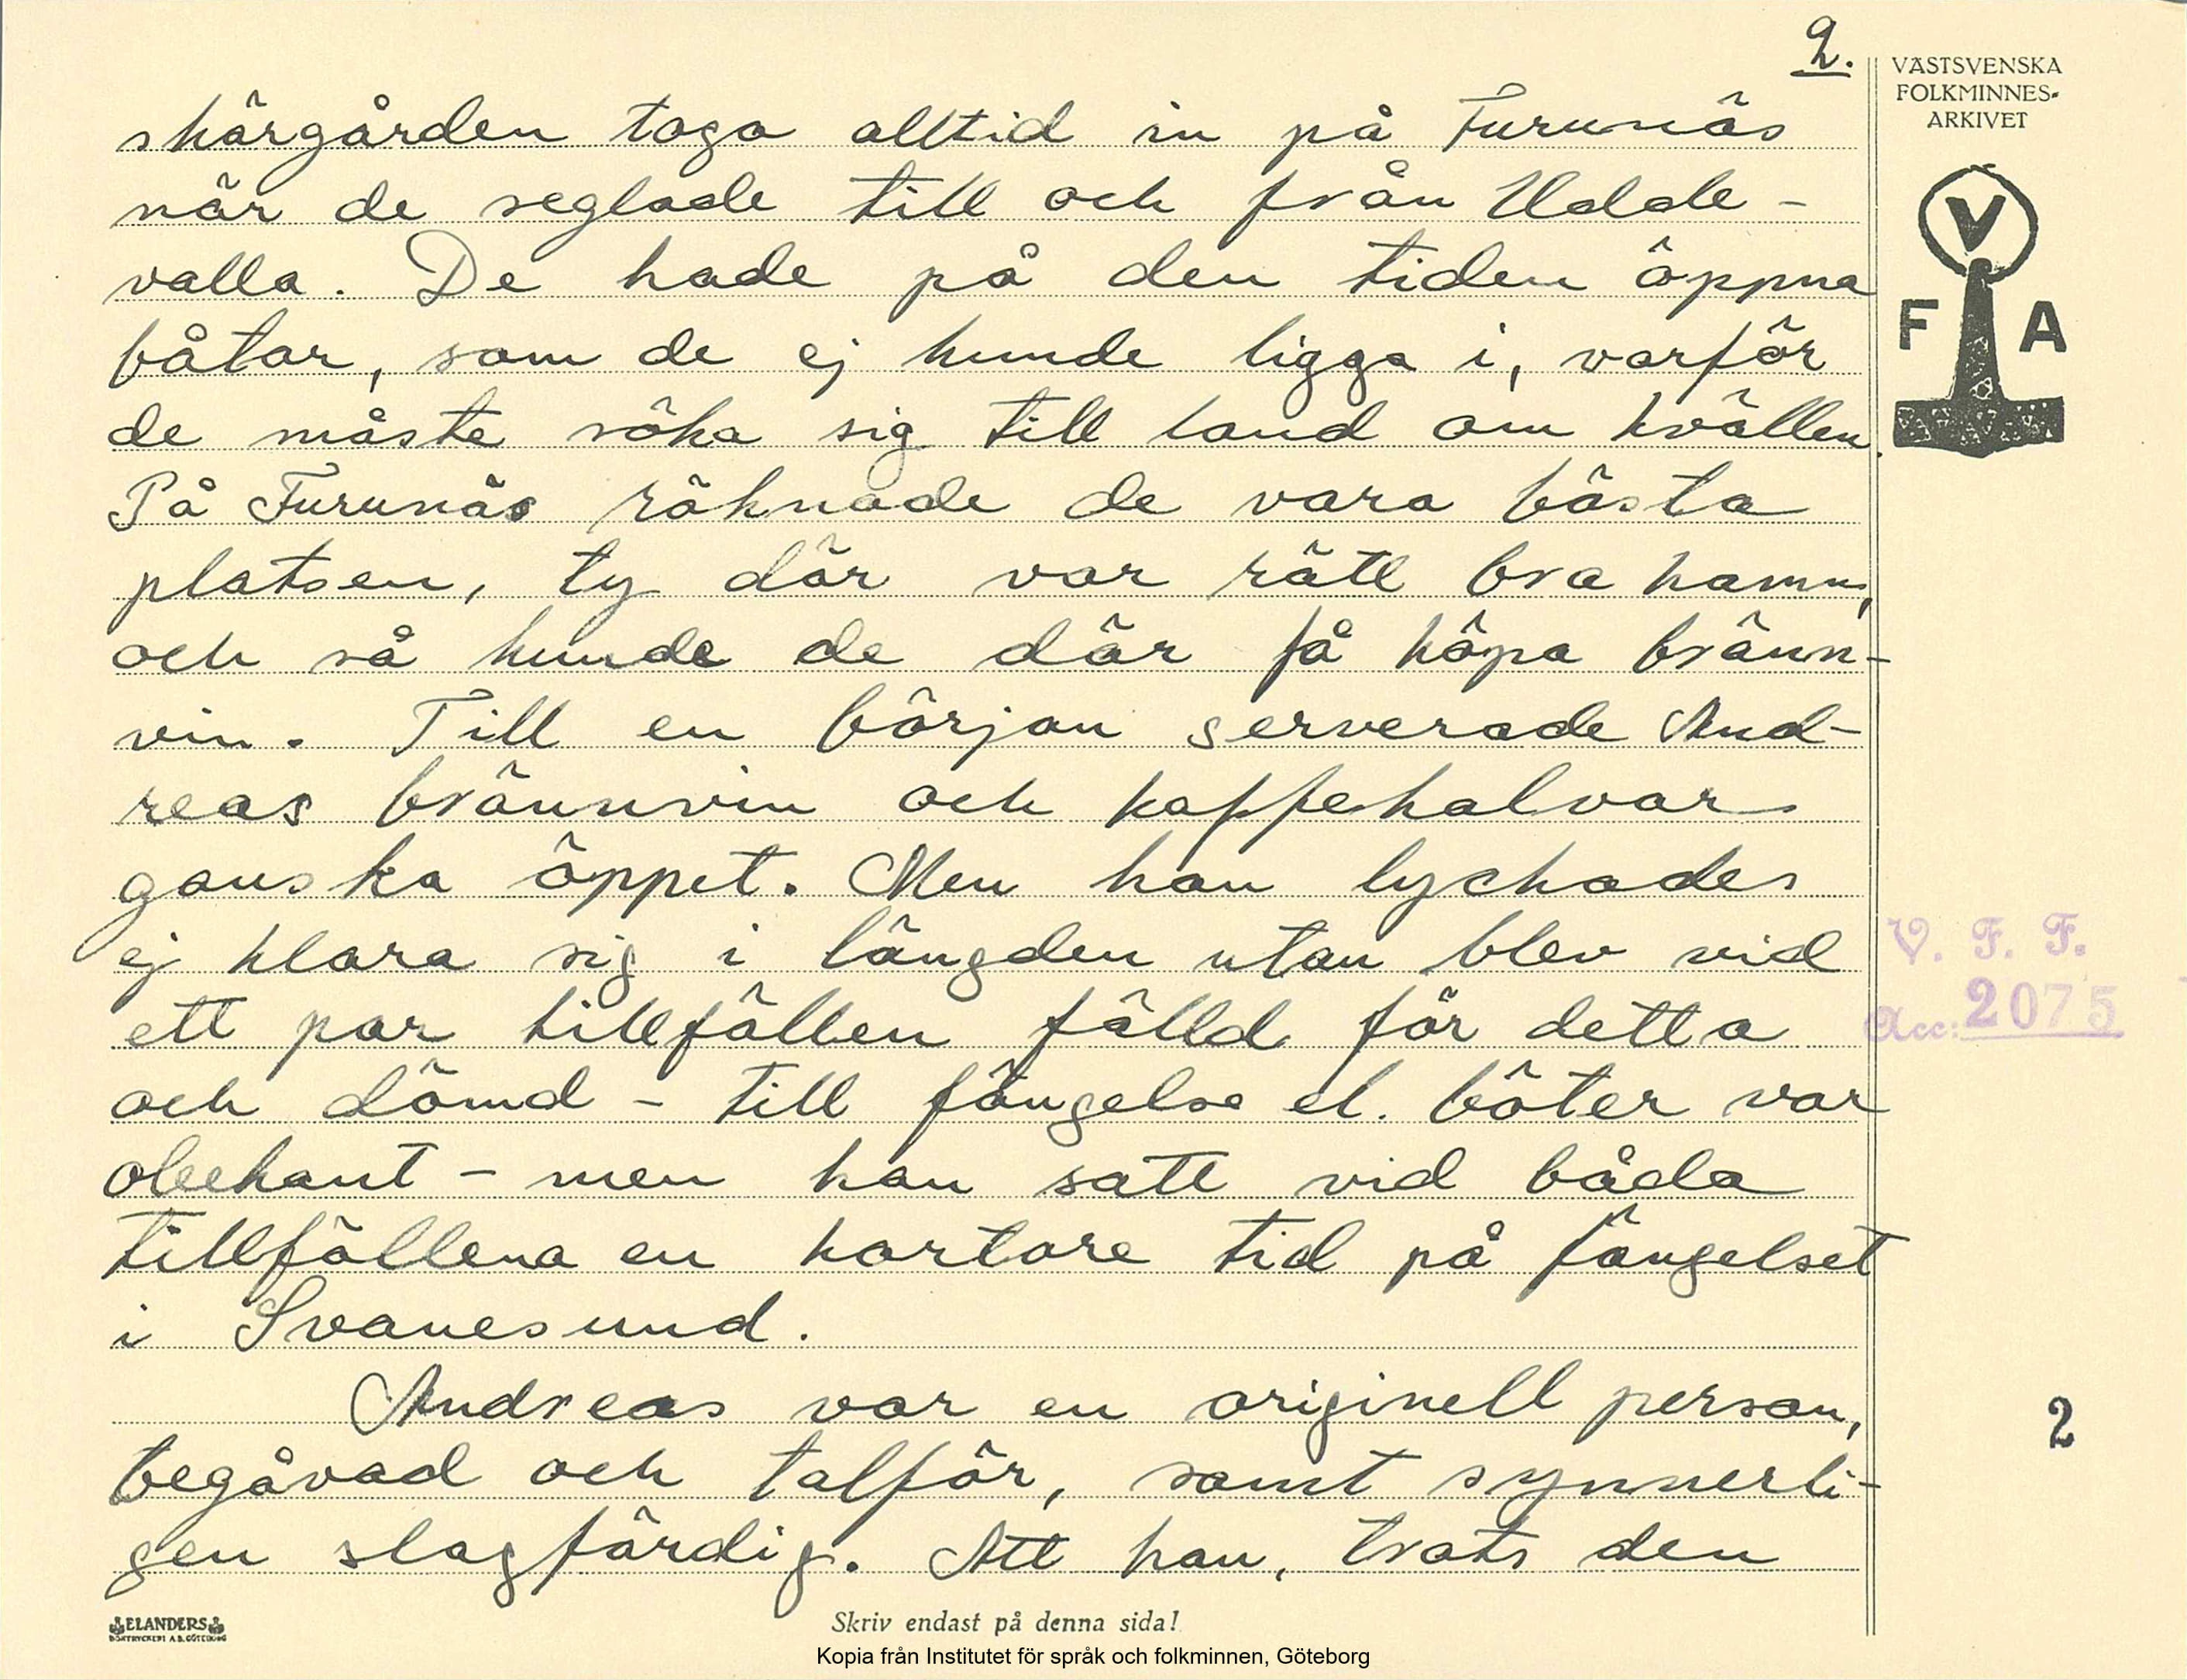 2.
VÄSTSVENSKA
FOLKMINNES-
ARKIVET
V
F A
skärgården togo alltid in på Furunäs
när de seglade till och från Udde-
valla. De hade på den tiden öppna
båtar, som de ej kunde ligga i, varför
de måste söka sig till land om kvällen.
På Furunäs räknade de vara bästa
platsen, ty där var rätt bra hamn,
och så kunde de där få köpa bränn-
vin. Till en början serverade And-
reas brännvin och kaffehalvor
ganska öppet. Men han lyckades
ej klara sig i längden utan blev vid
ett par tillfällen fälld för detta
och dömd - till fängelse el. böter var
obekant - men han satt vid båda
tillfällena en kortare tid på fängelset
i Svanesund.
Andreas var en originell person,
begåvad och talför, samt synnerli-
gen slagfärdig. Att han, trots den
V. F. F.
Acc: 2075
2
ELANDERS
BOKTRYCKERI A.B. GÖTEBORG
Skriv endast på denna sida!
Kopia från Institutet för språk och folkminnen, Göteborg